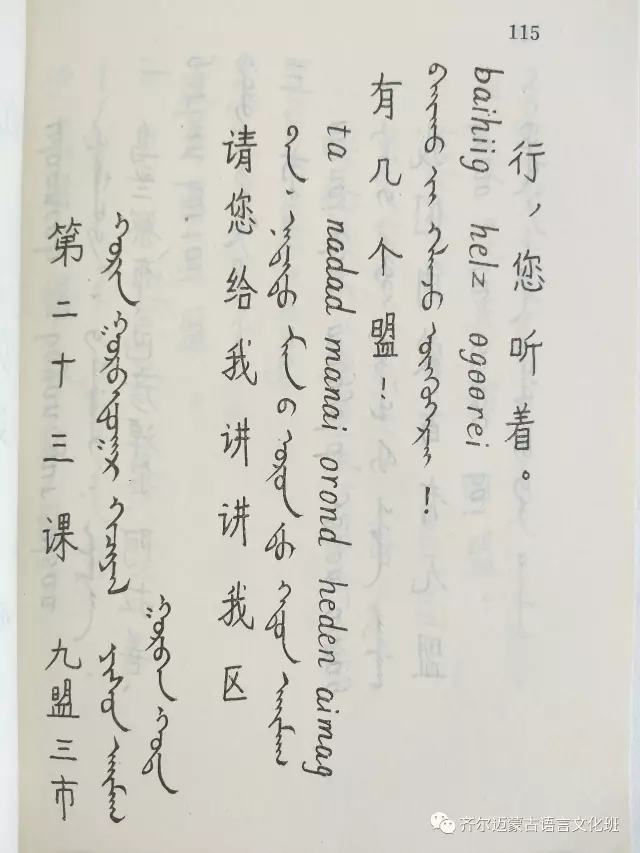 第二十三课 九盟三市
ᠬᠣᠷᠢᠨ ᠭᠤᠷᠪᠠᠳᠤᠭᠠᠷ ᠬᠢᠴᠢᠶᠡᠯ ᠶᠢᠰᠦᠨ ᠠᠶᠢᠮᠠᠭ
ᠭᠤᠷᠪᠠᠨ ᠬᠣᠲᠠ
请您给我讲讲我区
ᠲᠠ ᠨᠠᠳᠠᠳᠤ ᠮᠠᠨ ᠤ ᠣᠷᠣᠨ ᠳᠤ ᠬᠡᠳᠦᠨ ᠠᠶᠢᠮᠠᠭ
ta nadad manai orond heden aimag
有几个盟！
ᠪᠠᠶᠢᠬᠤ ᠶᠢ ᠬᠡᠯᠡᠵᠦ
baihiig helz ɵgɵɵrei
行，您听着。
115
齐尔迈蒙古语言文化班